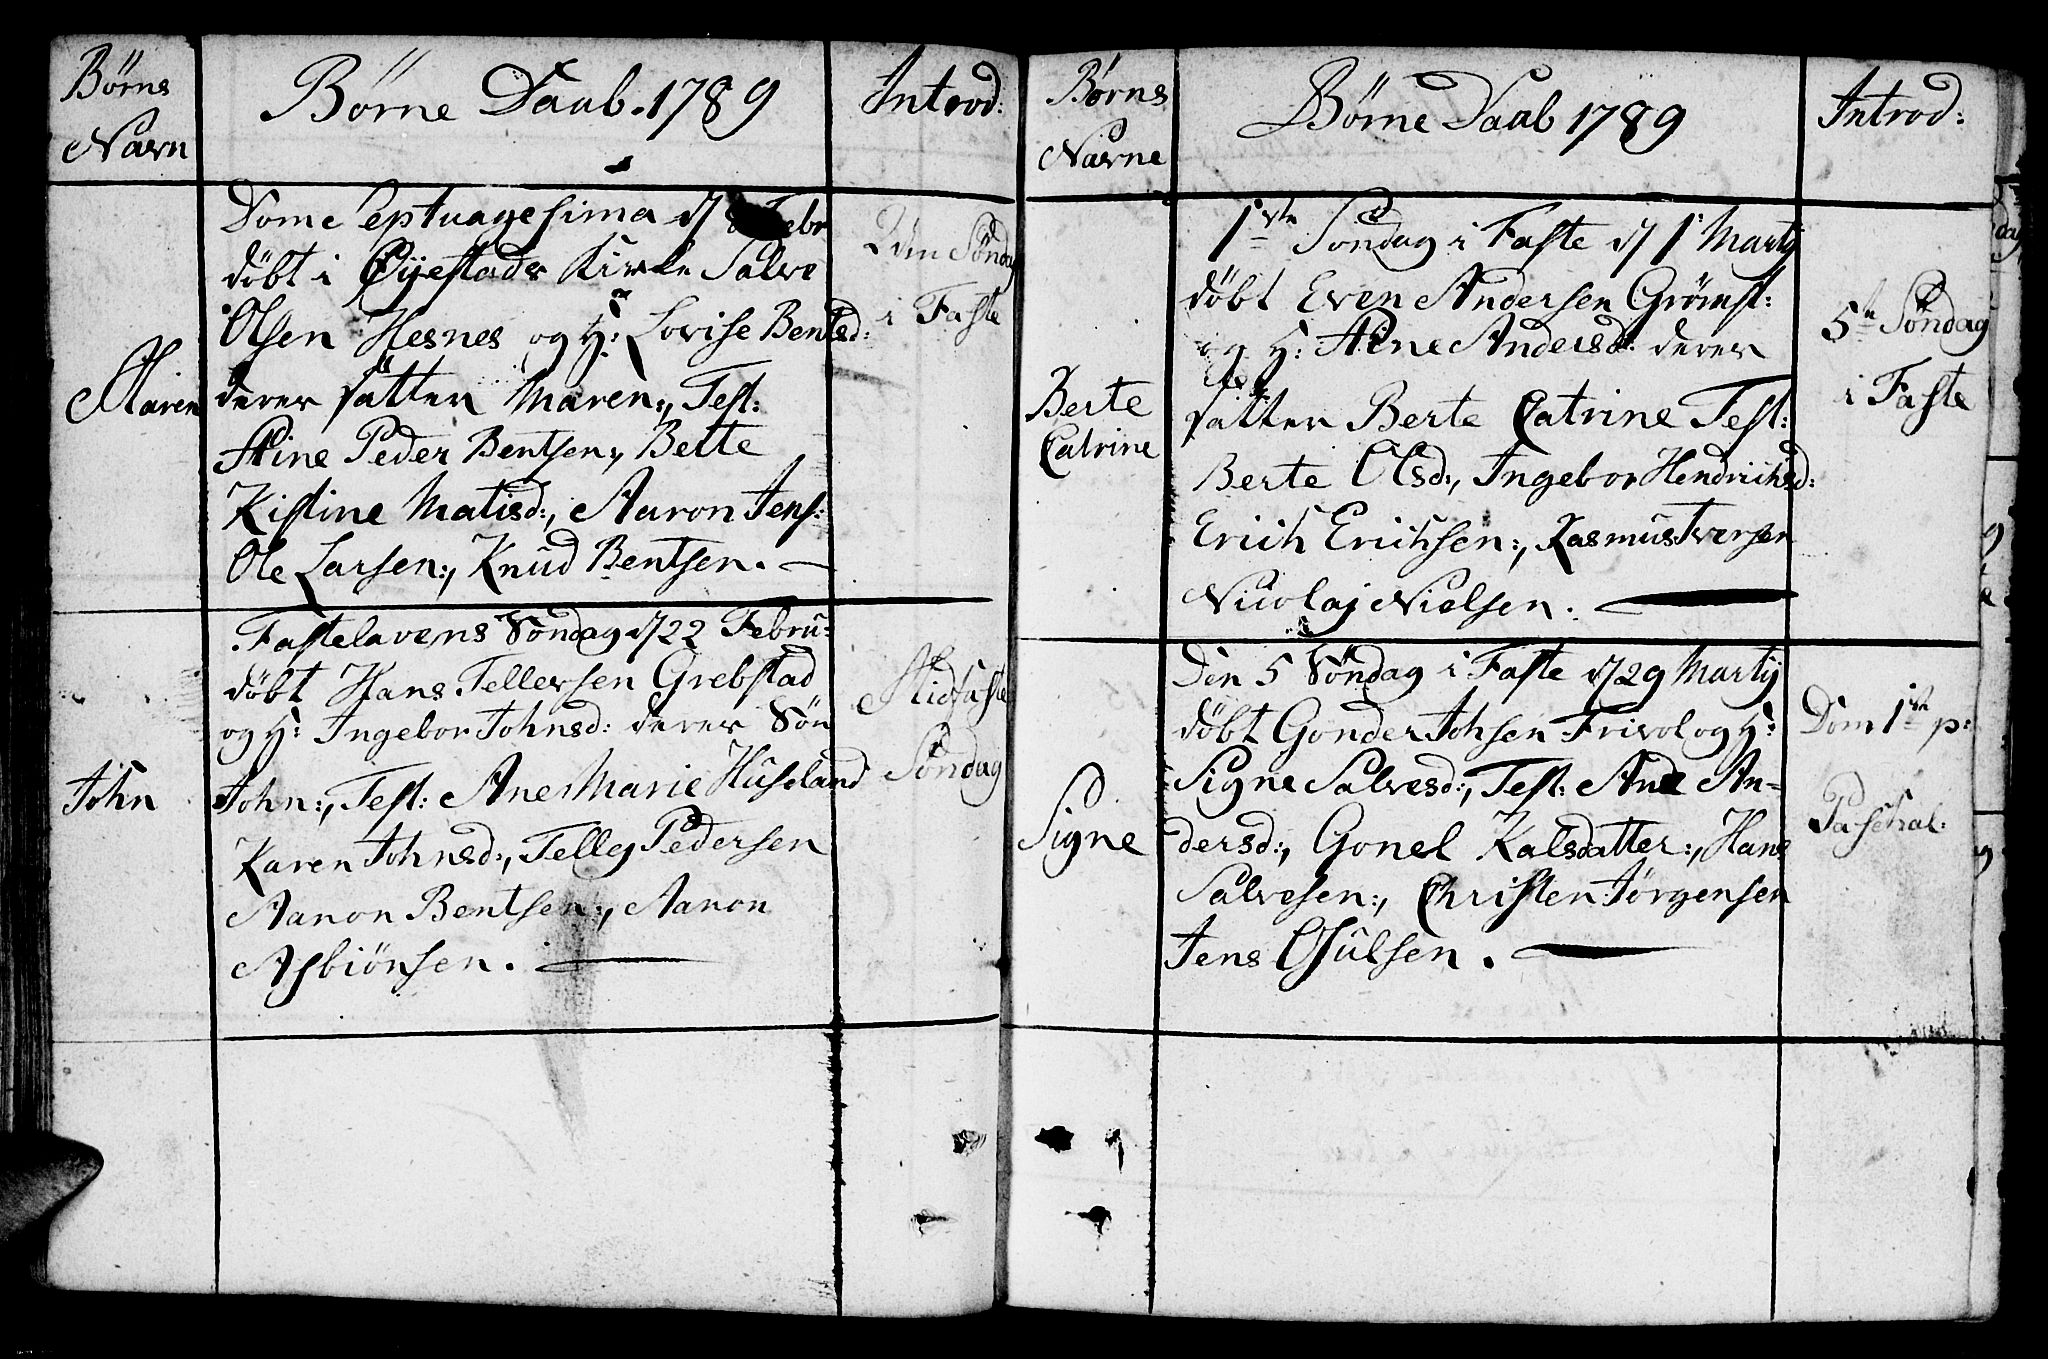 Børns
Navn
Børne Daab. 1789
Introd:
Maren
Dom Septuagesima d 8 Febr
döbt i Öyestads Kirke Salve
Olsen Hesnes og H: Lovise Bentsd:
derer datter Maren:, Test:
Stine Peder Bentsen:, Bette
Kistine Matisd:, Aaron Jens:
Ole Larsen:, Knud Bentsen.
2den Söndag
i Faste
John
Fastelavens Söndag d 22 Febru:
döbt Hans Tellersen Grebstad
og H: Ingebor Johnsd: derer Sön
John:, Test: Ane Marie Huseland
Karen Johnsd:, Telleg Pedersen
Aanon Bentsen:, Aanon
Asbiönsen.
Midfaste
Söndag
Børns
Navne
Börne Daab 1789
Introd:
Berte
Catrine
1ste Söndag i Faste d 1 Martij
döbt Even Andersen Grömst:
og H: Stine Andersd: derer
datter Berte Catrine Test:
Berte Olsd:, Ingebor Hendrichsd:
Erich Erichsen:, Rasmus Iversen
Nicolaj Nielsen.
5te Söndag
i Faste
Signe
Den 5 Söndag i Faste d 29 Martij
döbt Gonder Johsen Frivol og H:
Signe Salvesd:, Test: Ane An-
dersd:, Gonel Kalsdatter:, Hans
Salvesen:, Christen Jörgensen
Jens Osulsen.
Dom 1ste p:
Paschal: